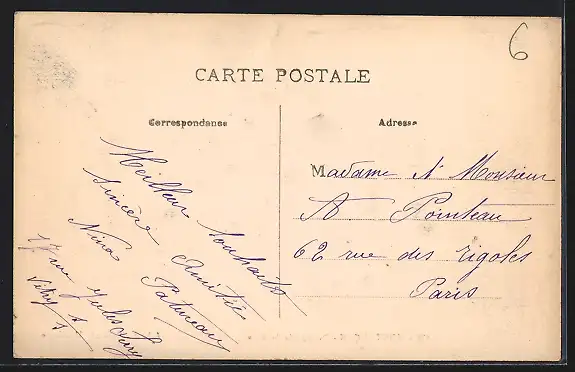 6
CARTE POSTALE
Correspondance
Adresse
Meilleur Souhaits
Sincère Amitié
Nina Patureau
17 rue Jules Ferry
Vitry
Madame & Monsieur
A Pointeau
62 rue des Rigoles
Paris